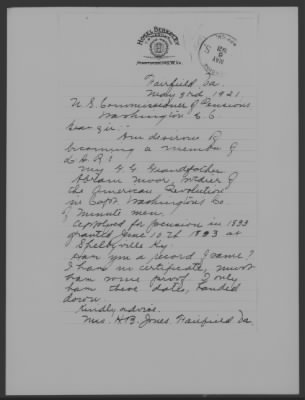 HOTEL BERKELEY
MARTINSBURG, W. VA.
Fairfield, Va
May 3rd 1921
U. S. Commissioner of Pensions
Washington D. C.
Dear Sir:-
Am desirous of
becoming a member of
D. A. R!
My G. G. Grandfather
Abram Moore, Soldier of
the American Revolution
in Capt. Washingtons Co.
of Minute men.
applied for pension in 1833
granted June 10th 1833 at
Shelbyville Ky.
Have you a record of same?
I have no certificate, must
have some proof I only
have these dates, handed
down.
Kindly advise.
Mrs. H. B. Jones, Fairfield Va